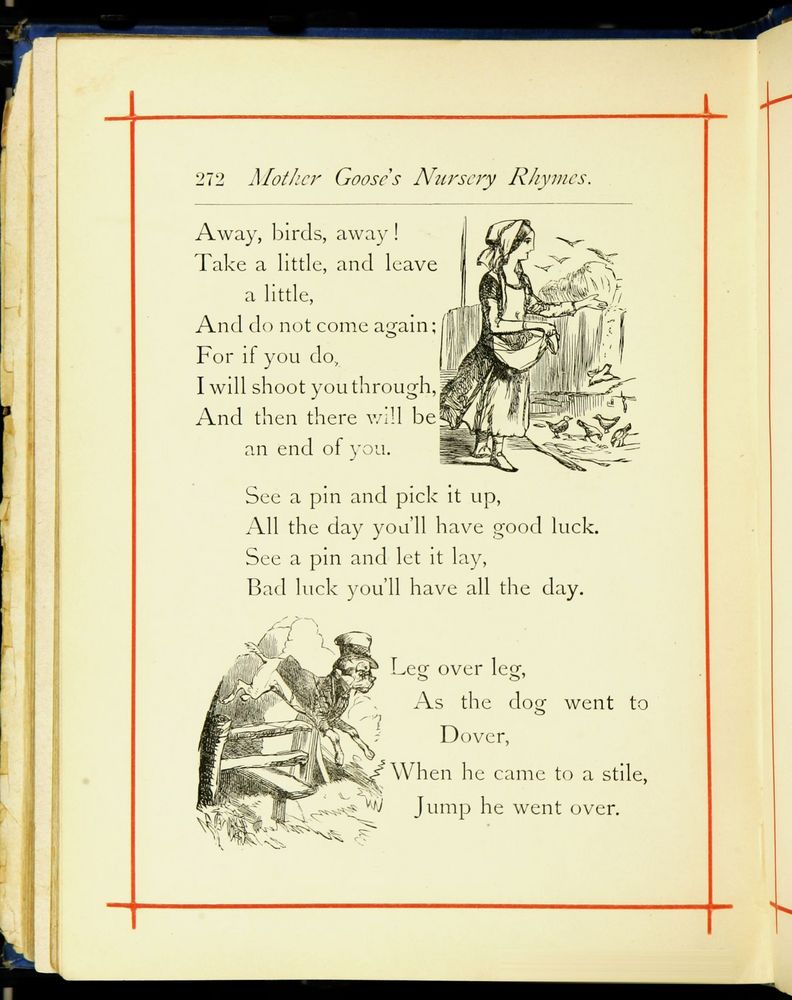 272 Mother Goose's Nursery Rhymes.
Away, birds, away!
Take a little, and leave
a little,
And do not come again;
For if you do,
I will shoot you through,
And then there will be
an end of you.
See a pin and pick it up,
All the day you'll have good luck.
See a pin and let it lay,
Bad luck you'll have all the day.
Leg over leg,
As the dog went to
Dover,
When he came to a stile,
Jump he went over.